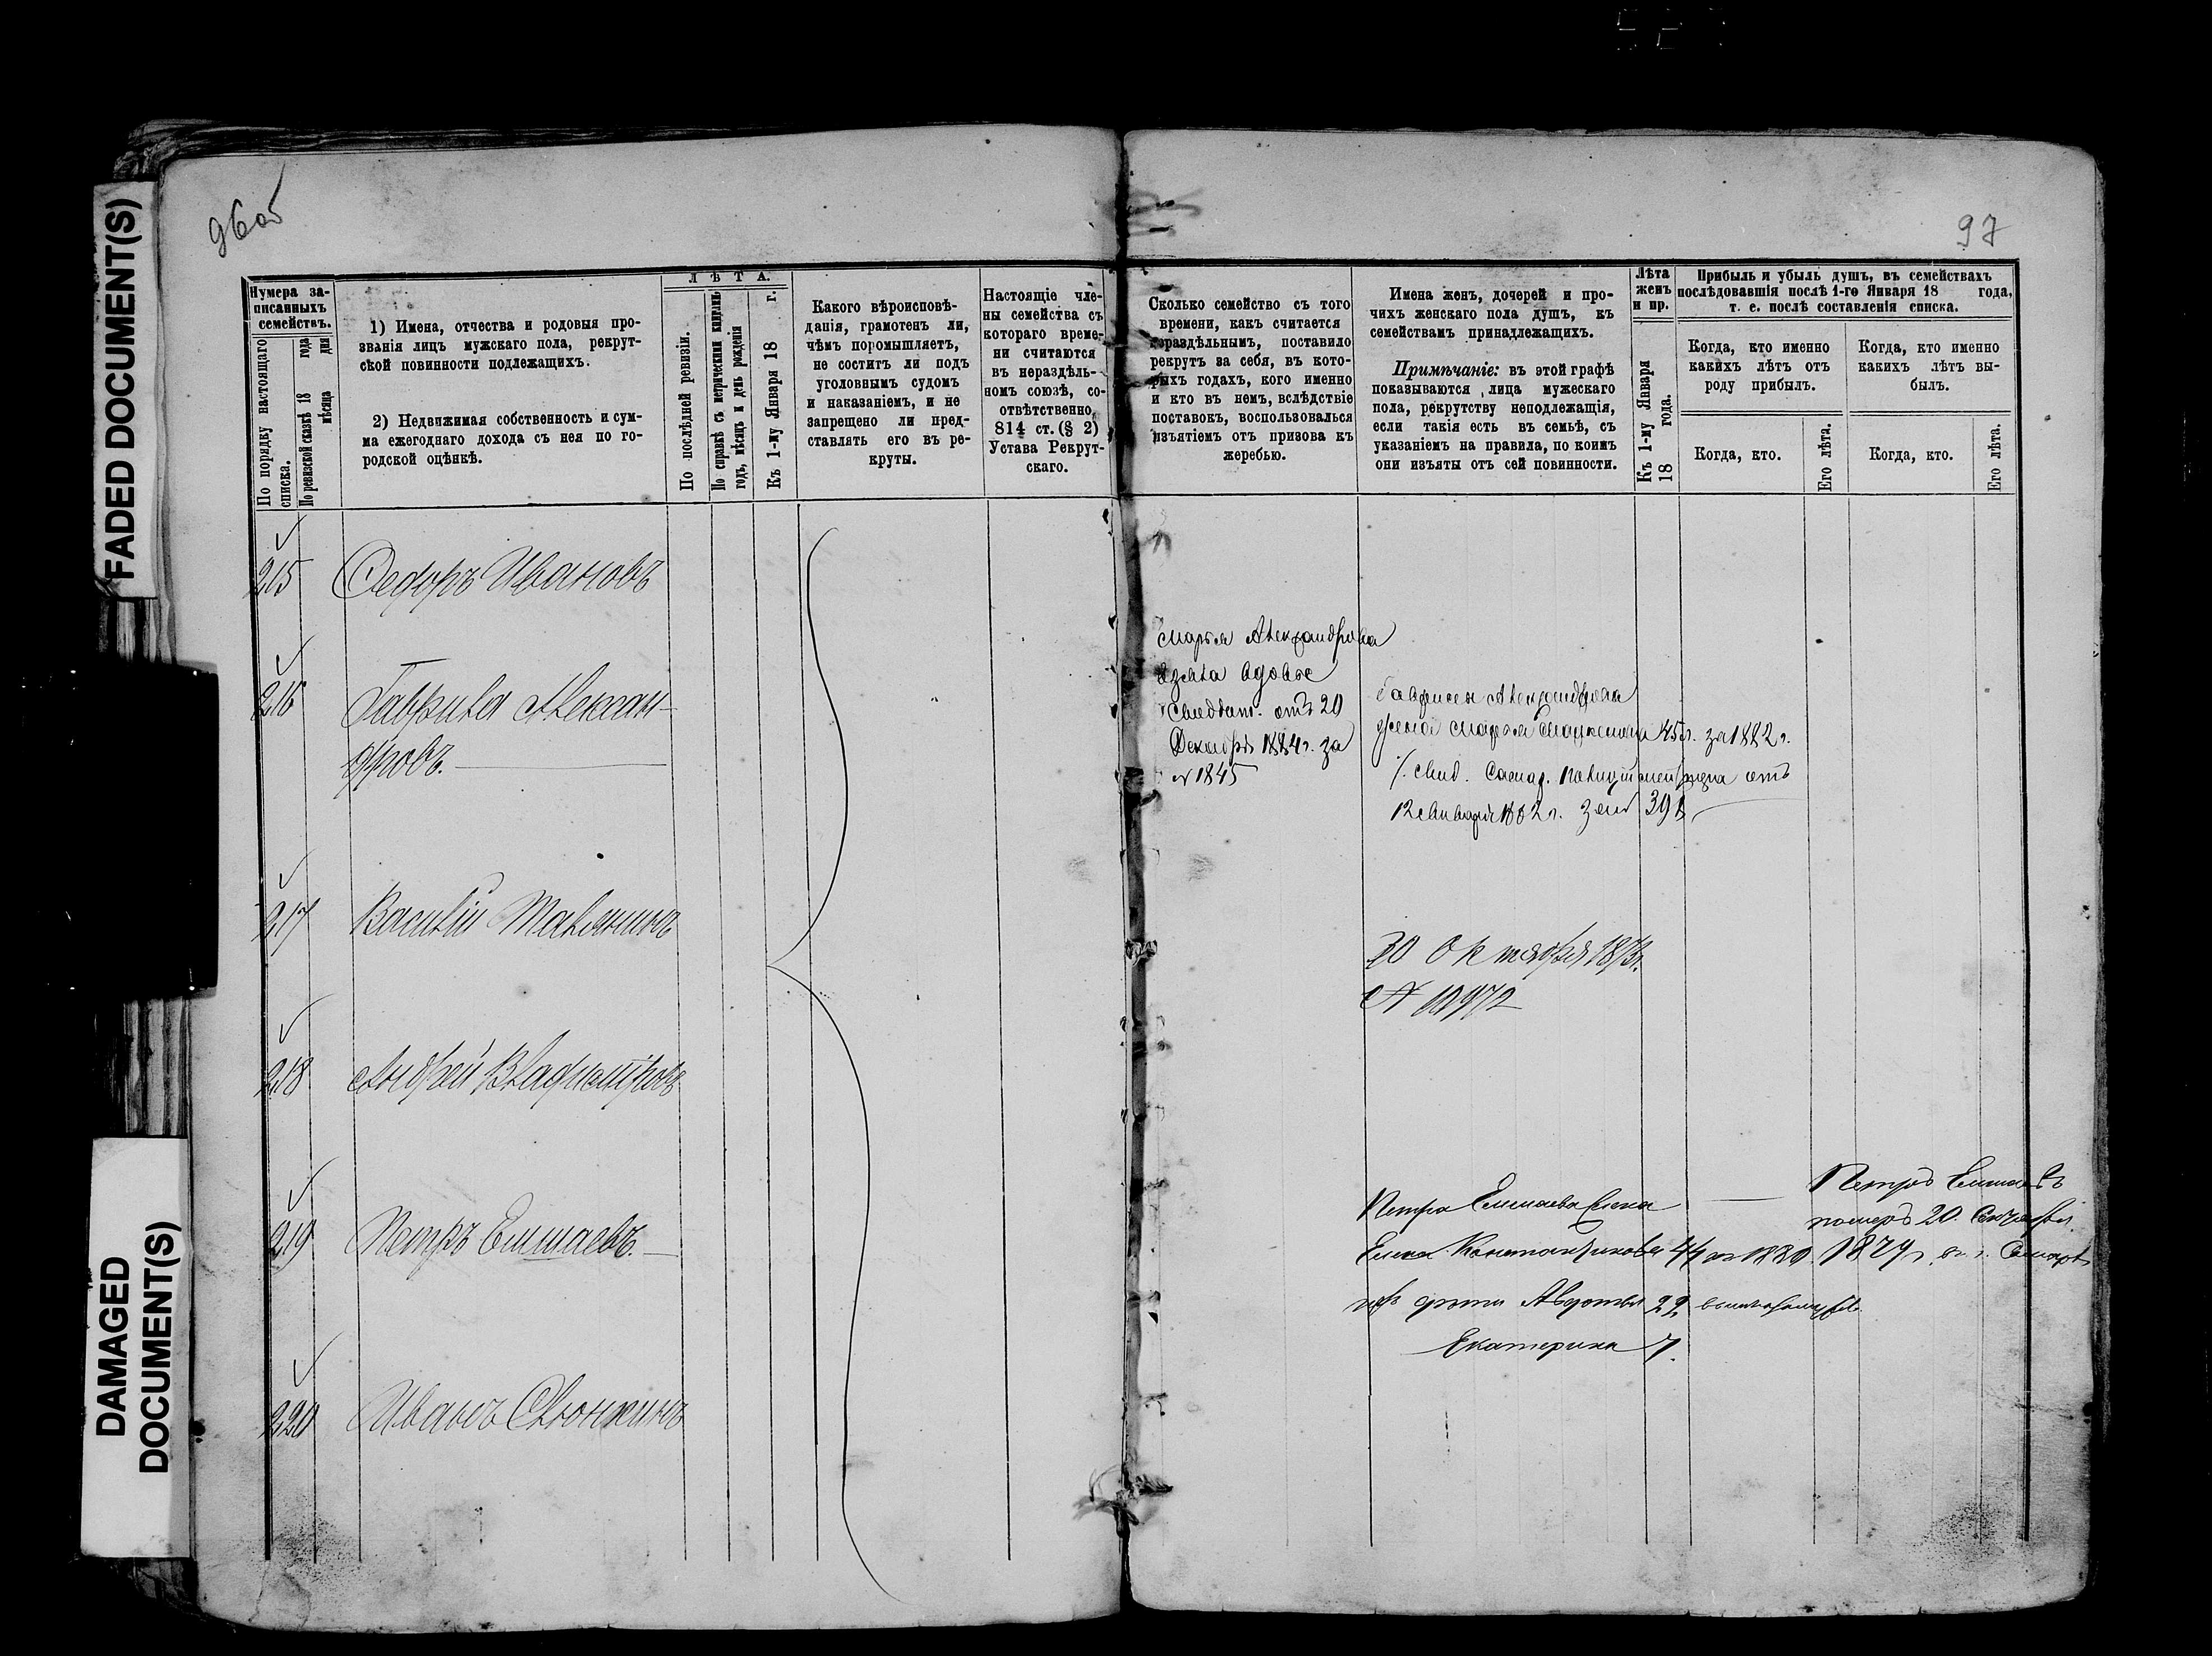 FADED DOCUMENT(S)
DAMAGED
DOCUMENT(S)
96об
Нумера за-
писанныхъ
семействъ.
По порядку настоящаго
списка.
По ревизской сказкѣ 18 года
мѣсяца дня
1) Имена, отчества и родовыя про-
званія лицъ мужскаго пола, рекрут-
ской повинности подлежащихъ.
2) Недвижимая собственность и сум-
ма ежегоднаго дохода съ нея по го-
родской оцѣнкѣ.
ЛѢТА.
По послѣдней ревизіи.
По справкѣ съ метрическими книгами
годъ, мѣсяцъ и день рожденія
Къ 1-му Января 18 г.
Какого вѣроисповѣ-
данія, грамотенъ ли,
чѣмъ поромышляетъ,
не соститъ ли подъ
уголовнымъ судомъ
и наказаніемъ, и не
запрещено ли пред-
ставлять его въ ре-
круты.
Настоящіе чле-
ны семейства съ
котораго време-
ни считаются
въ нераздѣль-
номъ союзѣ, со-
отвѣтственно
814 ст. (§ 2)
Устава Рекрут-
скаго.
215 Федоръ Ивановъ
216 Гаврила Алексан-
дровъ.
217 Василій
218 Андрей Владимировъ
219 Петръ Елшаевъ.
220 Иванъ
97
Сколько семейство съ того
времени, какъ считается
нераздѣльнымъ, поставило
рекрутъ за себя, въ кото-
рыхъ годахъ, кого именно
и кто въ немъ, вслѣдствіе
поставокъ, воспользовался
изъятіемъ отъ призова къ
жеребью.
Имена женъ, дочерей и про-
чихъ женскаго пола душъ, къ
семействамъ принадлежащихъ.
Примѣчаніе: въ этой графѣ
показываются лица мужескаго
пола, рекрутству неподлежащія,
если такія есть въ семьѣ, съ
указаніемъ на правила, по коимъ
они изъяты отъ сей повинности.
Лѣта
женъ
и пр.
Къ 1-му Января
18 года.
Прибыль и убыль душъ, въ семействахъ
послѣдовавшія послѣ 1-го Января 18 года,
т. е. послѣ составленія списка.
Когда, кто именно
какихъ лѣтъ отъ
роду прибылъ.
Когда, кто именно
какихъ лѣтъ вы-
былъ.
Когда, кто.
Его лѣта.
Когда, кто.
Его лѣта.
Марья Александрова
взята вдовье
свидѣт. отъ 20
Декабря 1884 г. за
№ 1845
Гаврилы Александрова
жена Марья 45 л. за 1882 г.
свид. Самар. отъ
12 Января 1882 г. за №
Октября
№
Петра Елшаева жена
Елена 44
дочь Авдотья 22
Екатерина 7.
Петръ Елшаевъ
померъ 20
1879 г. въ г. Самарѣ